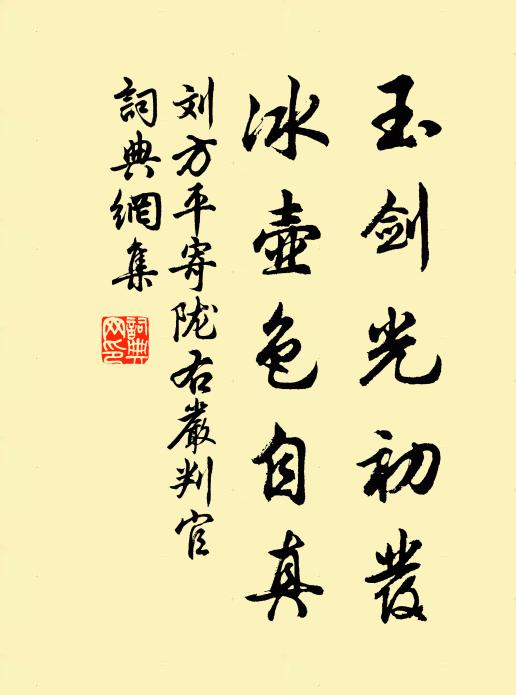 玉剑光初發
冰壺色自真
刘方平寄陇右嚴判官
詞典網集
詞典網印